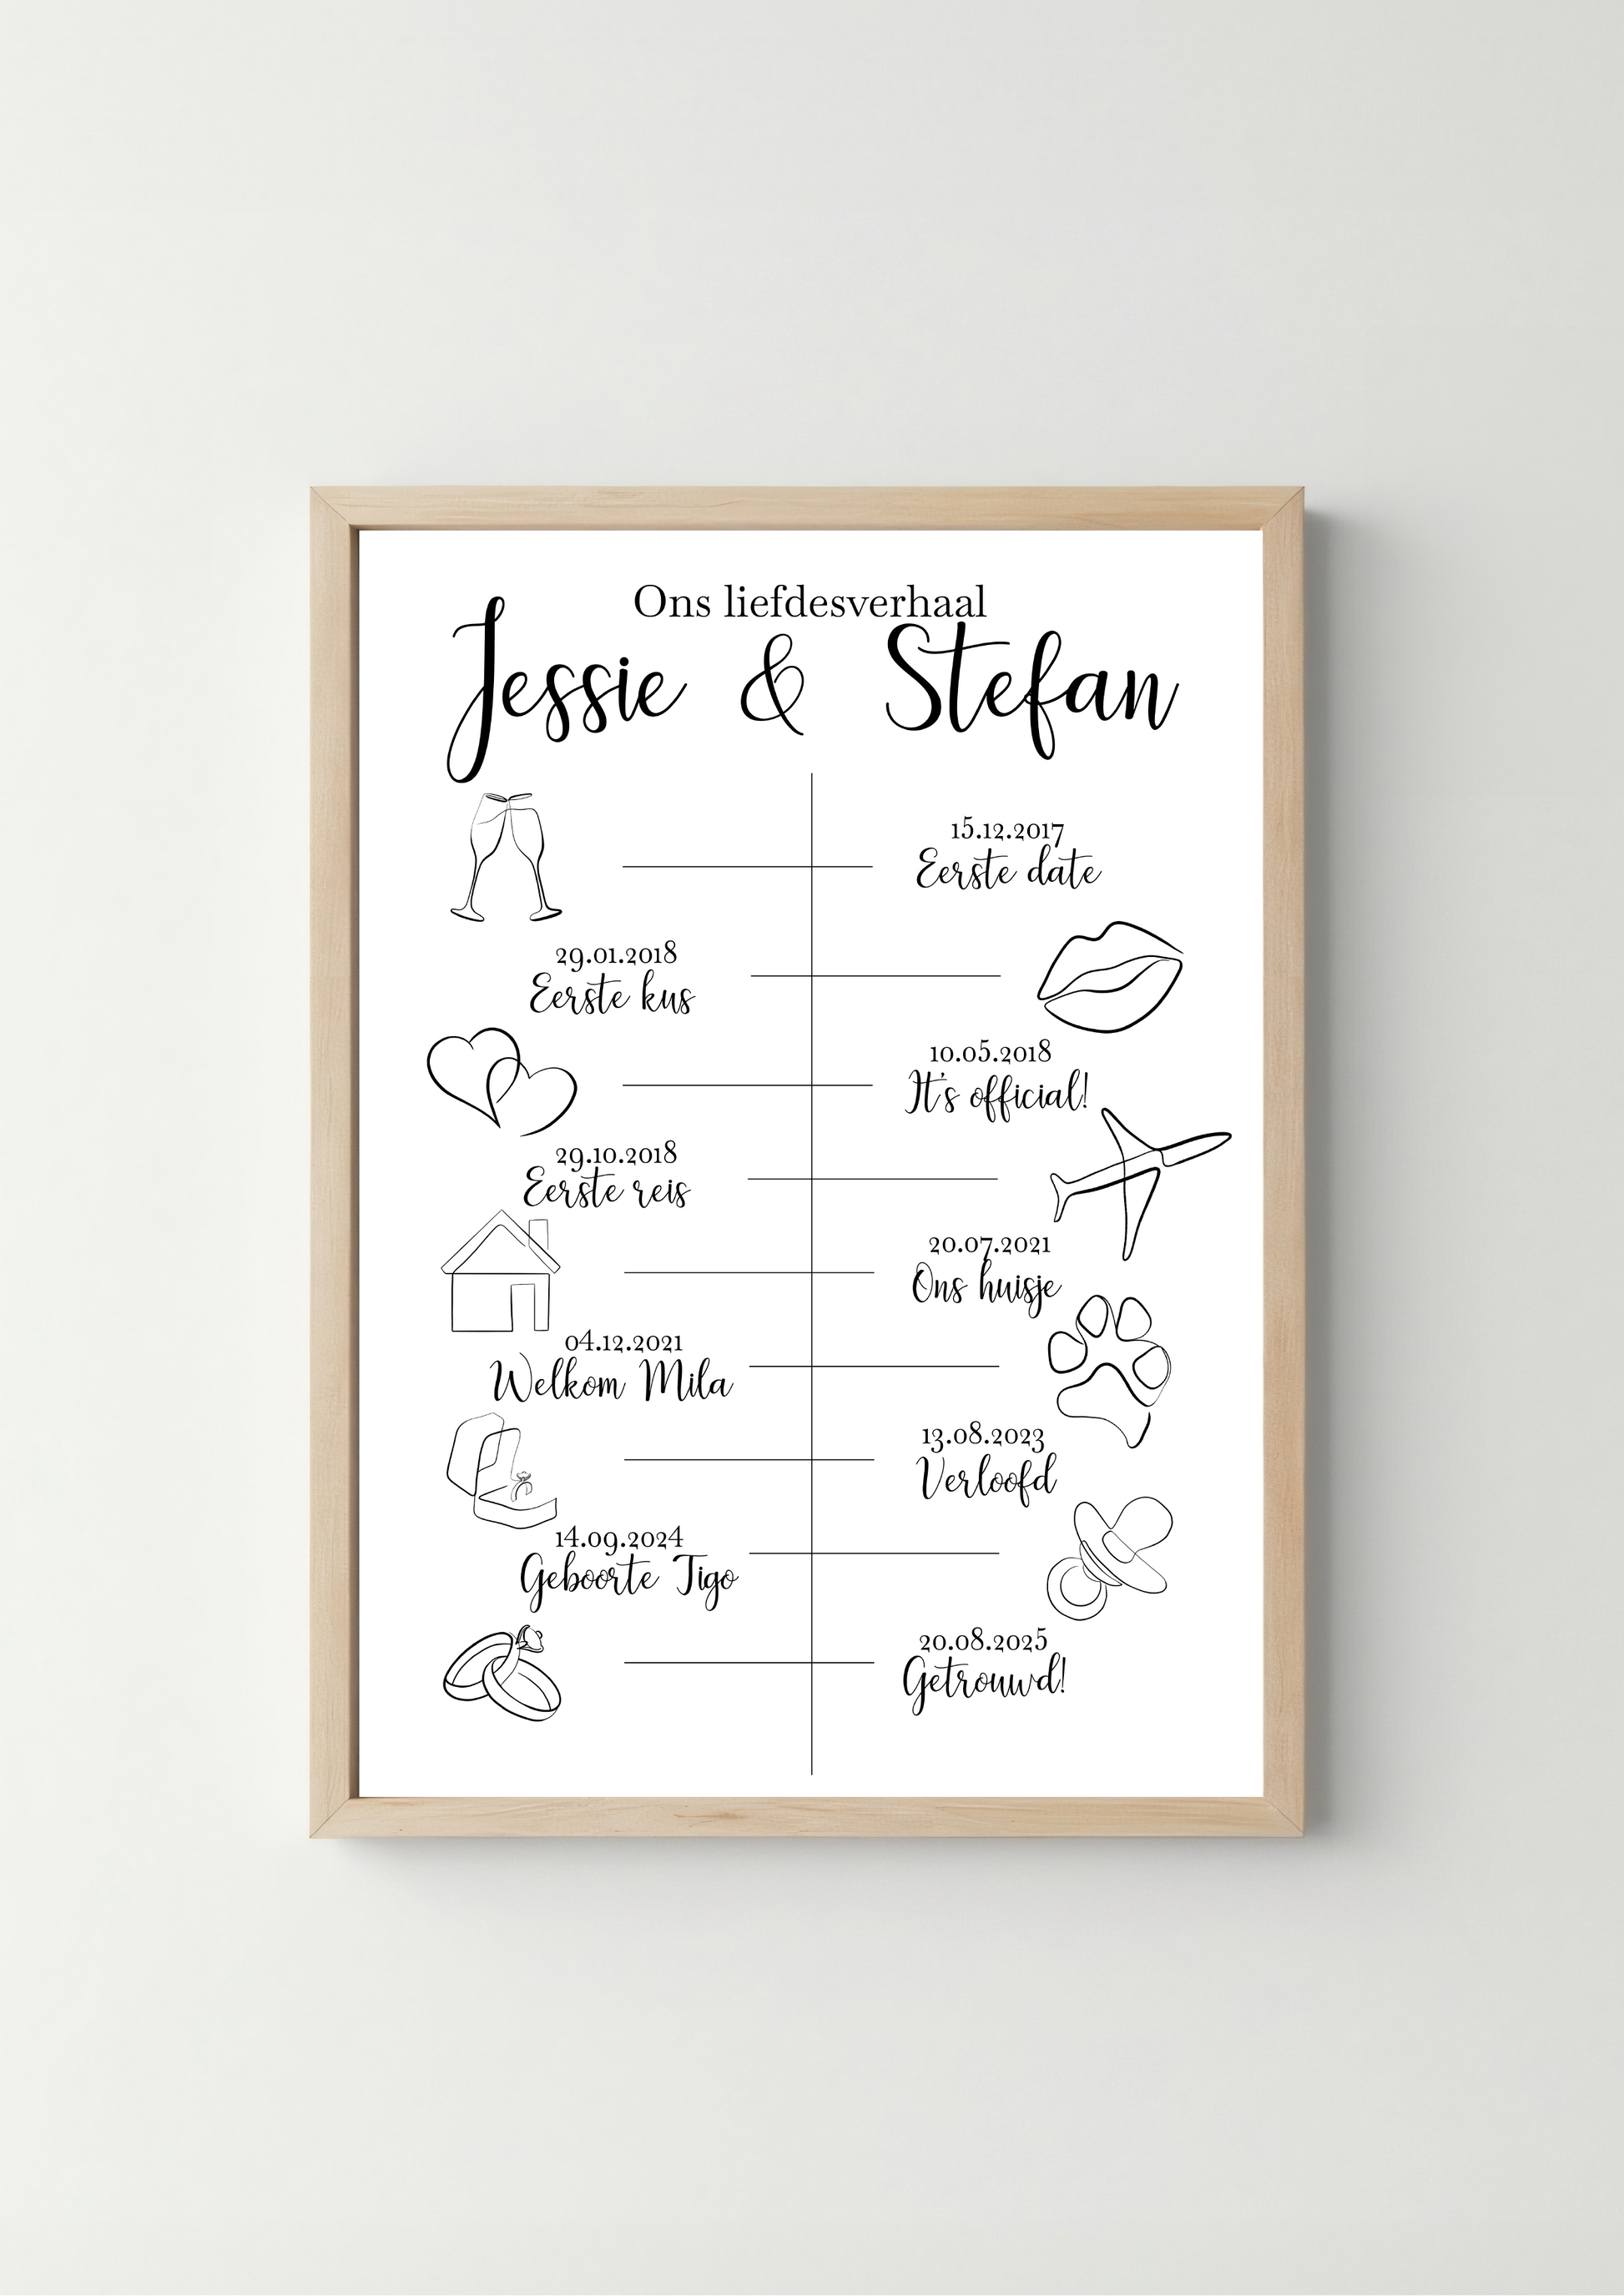 Ons liefdesverhaal
Jessie & Stefan
15.12.2017
Eerste date
29.01.2018
Eerste kus
10.05.2018
It's official!
29.10.2018
Eerste reis
20.07.2021
Ons huisje
04.12.2021
Welkom Mila
13.08.2023
Verloofd
14.09.2024
Geboorte Tigo
20.08.2025
Getrouwd!